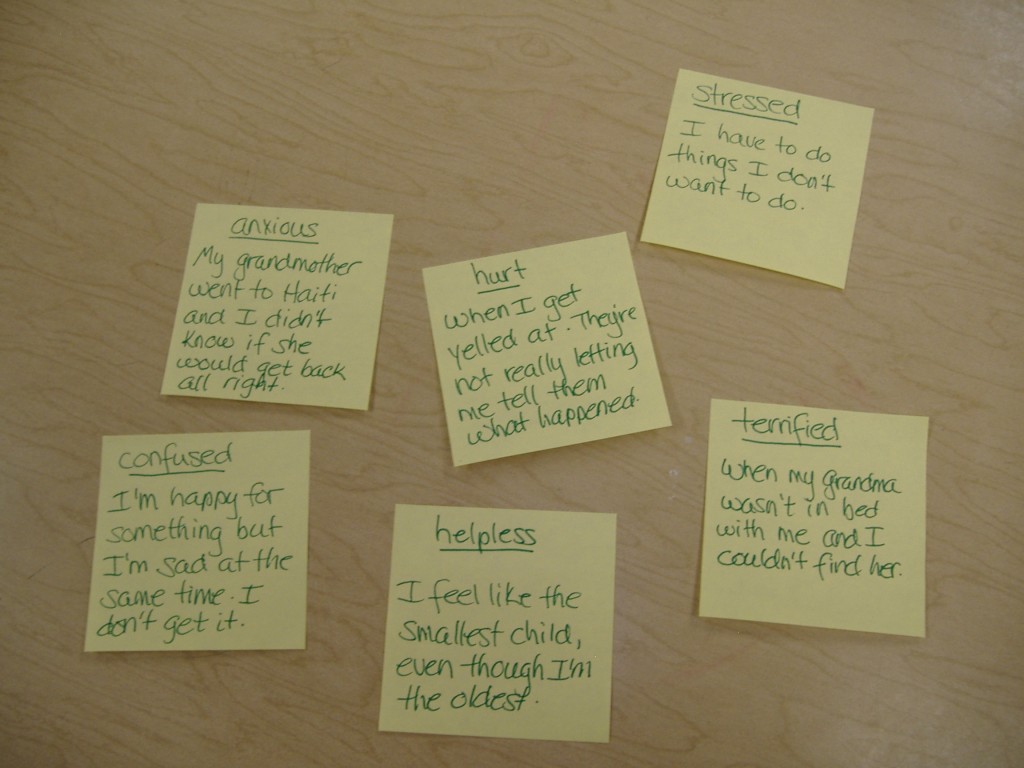 stressed
I have to do
things I don't
want to do.
anxious
My grandmother
went to Haiti
and I didn't
know if she
would get back
all right.
hurt
when I get
yelled at. They're
not really letting
me tell them
what happened.
terrified
when my grandma
wasn't in bed
with me and I
couldn't find her.
confused
I'm happy for
something but
I'm sad at the
same time. I
don't get it.
helpless
I feel like the
smallest child,
even though I'm
the oldest.